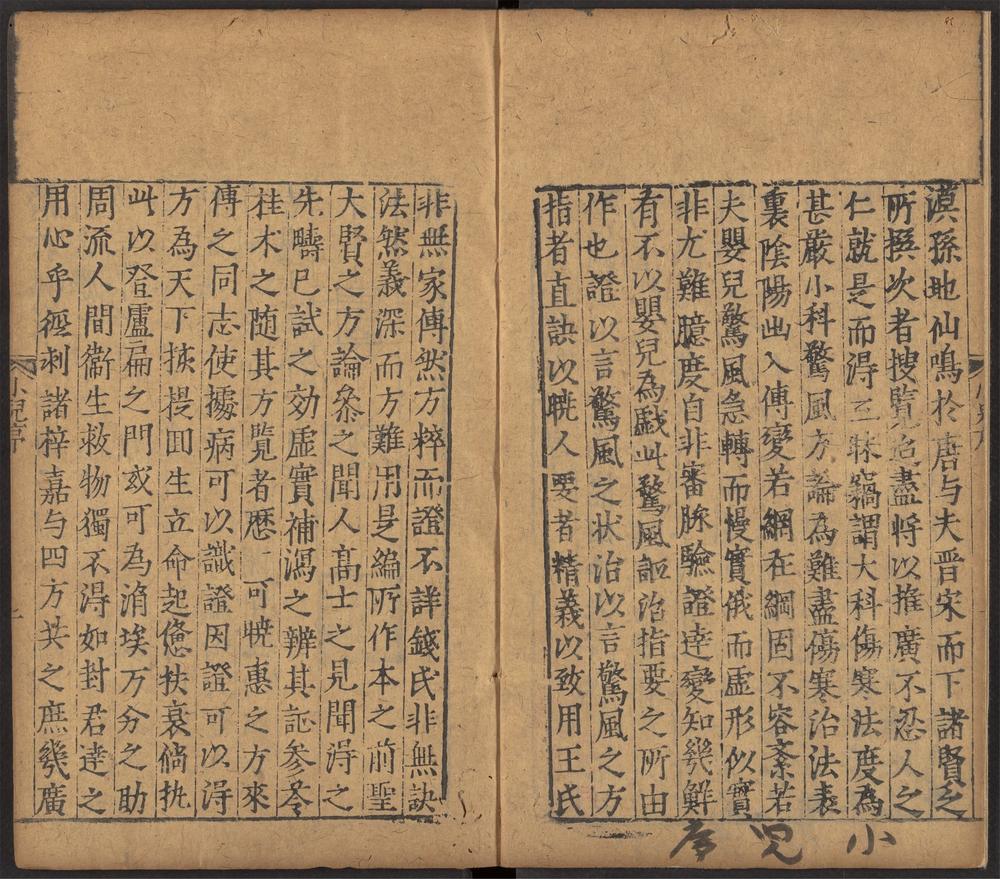 漠孫地仙鳴於唐与夫晋宋而下諸賢之
所撰次者搜覽迨盡將以推廣不忍人之
仁就是而得三昧竊謂大科傷寒法度為
甚嚴小科驚風方論為難盡傷寒治法表
裏陰陽出入傳變若網在綱固不容紊若
夫嬰兒驚風急轉而慢實俄而虛形似實
非尤難臆度自非審脉驗證達變知幾鮮
有不以嬰兒為戯此驚風詎治指要之所由
作也證以言驚風之状治以言驚風之方
指者直訣以暁人要者精義以致用王氏
非無家傳然方粹而證不詳錢氏非無訣
法然義深而方難用是編所作本之前聖
大賢之方論叅之聞人高士之見聞得之
先疇已試之効虛實補瀉之辨其証參苓
桂术之随其方覽者歷一可暁惠之方來
傳之同志使據病可以識證因證可以得
方為天下掖提囬生立命起憊扶衰倘執
此以登盧扁之門或可為涓埃万分之助
周流人間衛生救物獨不得如封君達之
用心乎徑刹諸梓嘉与四方共之庶幾廣
小兒序
小児序